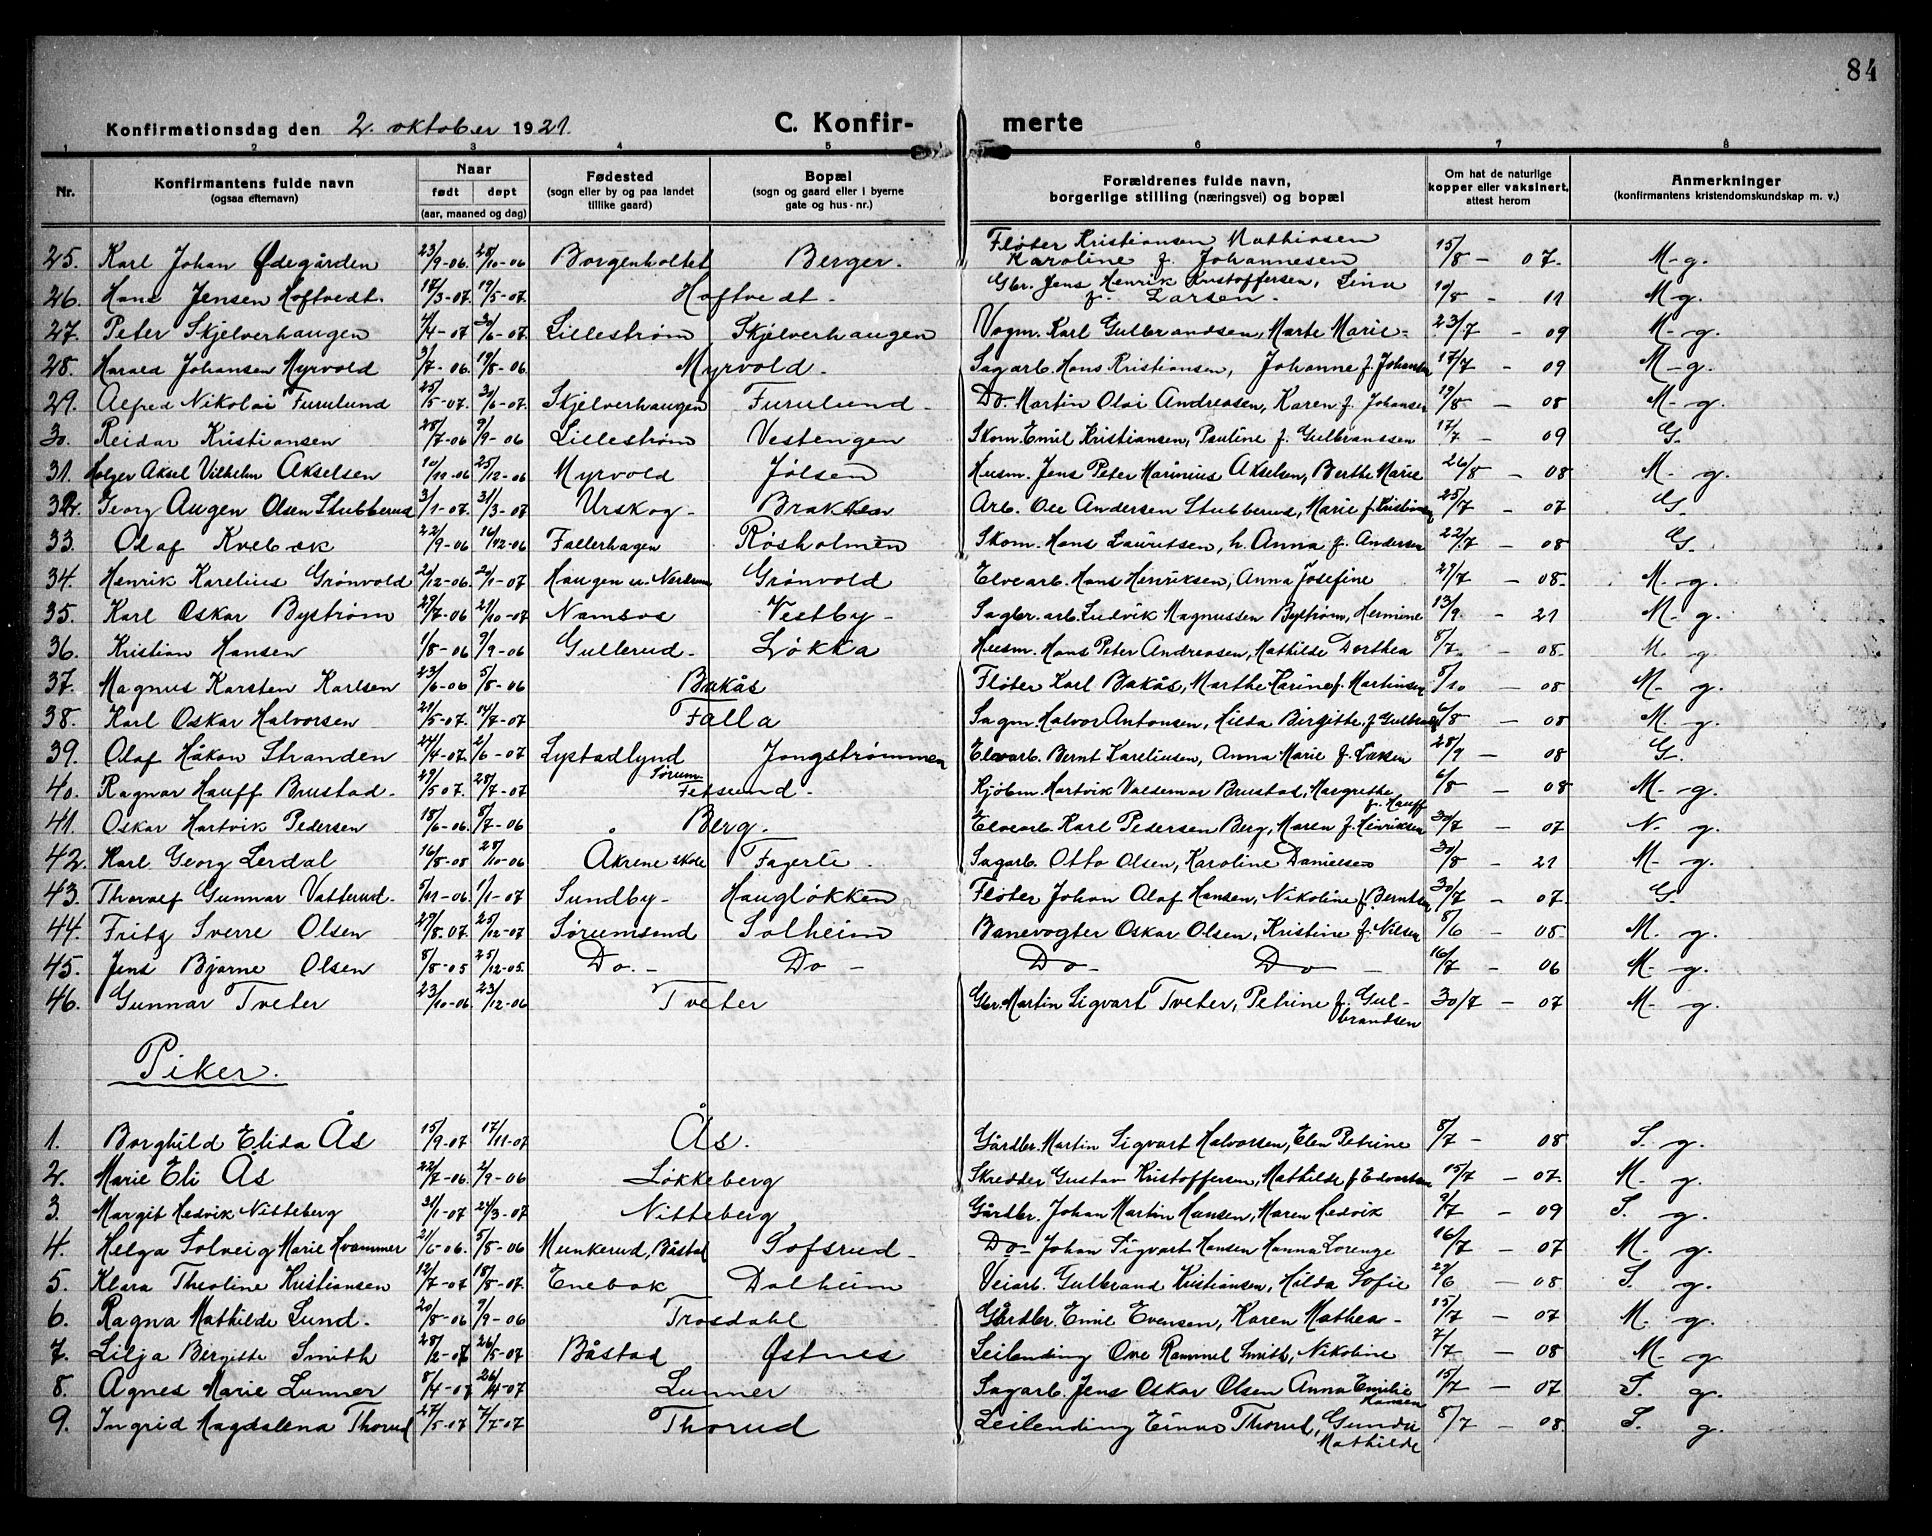 84
Konfirmationsdag den 2. oktober 1921.
C. Konfirmerte
1 2 3 4 5 6 7 8
Nr.
Konfirmantens fulde navn
(ogsaa efternavn)
Naar
født døpt
(aar, maaned og dag)
Fødested
(sogn eller by og paa landet
tillike gaard)
Bopæl
(sogn og gaard eller i byerne
gate og hus-nr.)
Forældrenes fulde navn,
borgerlige stilling (næringsvei) og bopæl
Om hat de naturlige
kopper eller vaksinert,
attest herom
Anmerkninger
(konfirmantens kristendomskundskap m. v.)
25. Karl Johan Ødegården 23/9-06. 28/10-06 Borgenholtet Berger. Fløter Kristiansen Mathiasen Karoline f. Johannesen 15/8 - 07. M-g.
26. Hans Jensen Hoftvedt. 17/3-07. 19/5-07. Hoftvedt. Gbr. Jens Henrik Kristoffersen, Lina f. Larsen. 10/8 - 11 Mg.
27. Peter Skjelverhaugen /4-07 30/6-07. Lillestrøm Skjelverhaugen Vogm. Karl Gulbrandsen, Marte Marie 23/7 - 09 M-g.
28. Harald Johansen Myrvold 3/7-06. 19/8-06. Myrvold. Sagarb. Hans Kristiansen, Johanne f. Johansen 17/7 - 09 M-g.
29. Alfred Nikolai Furulund 25/5-07. 30/6-07. Skjelverhaugen Furulund. Do. Martin Olai Andreasen, Karen f. Johansen 19/8 - 08 M-g.
30. Reidar Kristiansen 28/7-06 9/9-06 Lillestrøm Vestengen Skom. Emil Kristiansen, Pauline f. Gulbranssen 17/7 - 09 G.
31. Holger Aksel Vilhelm Akselsen 10/11-06 25/12-06 Myrvold Jølsen Husm. Jens Peter Marinius Akselsen, Berthe Marie 26/8 - 08 M-g.
32. Georg Augen Olsen Stubberud 3/1-07. 31/3-07 Urskog Brakken Arb. Ole Andersen Stubberud, Marie f. Kristiansen 25/7 - 07 G.
33. Olaf Kvebæk 22/9-06 16/12-06 Fallerhagen Røsholmen Skom. Hans Lauritsen, h. Anna f. Andersen 22/7 - 08 G.
34. Henrik Karelius Grønvold 2/12-06. 20/1-07 Haugen u. Nerdrum Grønvold Elvearb. Hans Henriksen, Anna Josefine 29/7 - 08. M-g.
35. Karl Oskar Bystrøm 29/7-06 21/10-07 Namsos Vestby Sagbr.arb. Ludvik Magnussen Bystrøm, Hermine 13/9. - 21 M-g.
36. Kristian Hansen 1/8-06 9/9-06 Gullerud. Løkka Husm. Hans Peter Andreasen, Mathilde Dorthea 8/7. - 08. M. g.
37. Magnus Karsten Karlsen 23/6-06 5/8-06 Bakås Fløter Karl Bakås, Marthe Karine f. Martinsen 5/10 - 08 M-g.
38. Karl Oskar Halvorsen 29/5-07. 14/7-07 Falla Sagm. Halvor Antonsen, Hilda Birgitte f. Gulbrands 6/8 - 08 M-g.
39. Olaf Håkon Stranden 24/4-07. 2/6-07 Lystadlynd Jongstrømmen Elvearb. Bernt Kareliusen, Anna Marie f. Larsen 28/9 - 08 G.
40. Ragnar Hauff Brustad. 29/5 07. 28/7-07 Sørum Fetsund. Kjøbm. Hartvik Valdemar Brustad, Margrethe f. Hauff 6/8 - 08 M-g.
41. Oskar Hartvik Pedersen 18/6-06. 8/7-06 Berg. Elvearb. Karl Pedersen Berg, Maren f. Henriksen 30/7 - 07 N. g.
42. Karl Georg Lerdal 16/8-05 28/10-06 Åkrene skole Fagerli Sagarb. Otto Olsen, Karoline Danielsen 30/8 - 21 M-g.
43. Thoralf Gunnar Vatterud. 5/11-06. 1/1-07 Sundby Haugløkken Fløter Johan Olaf Hansen, Nikoline f. Berntsen 30/7 - 07. G.
44. Fritz Sverre Olsen 29/8.07. 25/12-07 Sørumsand Solheim Banevogter Oskar Olsen, Kristine f. Nilsen 8/6 - 08. M-g.
45. Jens Bjarne Olsen 8/8-05 25/12-05. Do. Do Do Do 16/7 - 06 M-g.
46. Gunnar Tveter 23/10-06. 23/12-06 Tveter Gbr. Martin Sigvart Tveter, Petrine f. Gulbrandsen 30/7 - 07 M-g.
Piker.
1. Borghild Elida Ås 15/9-07 17/11-07 Ås. Gårdbr. Martin Sigvart Halvorsen, Elen Petrine 8/7 - 08 S. g.
2. Marie Eli Ås 22/7-06. 2/9-06 Løkkeberg Skredder Gustav Kristoffersen, Mathilde f. Edvartsen 15/7 - 07. M. g.
3. Margit Hedvik Nitteberg 31/1-07 24/3-07 Nitteberg Gårdbr. Johan Martin Hansen, Maren Hedvik 9/7 - 09 S. g.
4. Helga Solveig Marie Hvammer 21/6-06. 5/8-06 Munkerud, Båstad Sofsrud. Do Johan Sigvart Hansen Hanna Lorenze 16/7 - 07 M. g.
5. Klara Theoline Kristiansen 12/7-07 18/8-07. Enebak Dalheim Veiarb. Gulbrand Kristiansen, Hilda Sofie 29/6 - 08 S. g.
6. Ragna Mathilde Lund. 20/8-06 9/9-06 Trosdahl Gårdbr. Emil Evensen, Karen Mathea 15/7 - 07 M. g.
7. Lilja Bergitte Smith 28/2-07 26/5-07 Båstad Østnes Leilending Ove Rammel Smith, Nikoline 7/7 - 08 M-g.
8. Agnes Marie Lunner 8/4-07 26/4-07 Lunner Sagarb. Jens Oskar Olsen Anna Emilie Hansen 15/7 - 07 S. g.
9. Ingrid Magdalena Thorud 27/5-07 7/7-07 Thorud Leilending Einar Thorud, Gunda Mathilde 8/7 - 08. S. g.